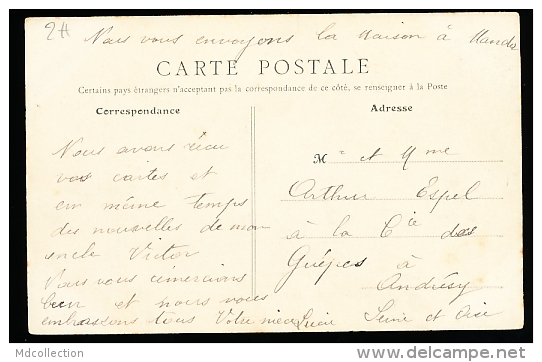 2 H
Nous vous envoyons la Maison à Mandu
CARTE POSTALE
Certains pays étrangers n'acceptant pas la correspondance de ce côté, se renseigner à la Poste
Correspondance
Nous avons récu
vos cartes et
em même temps
des nouvelles de mon
oncle Victor
Nous vous rémercions
bien et nous vous
embrassons tous Votre niece Lucie
Adresse
M r et Mme
Arthur Espel
à la Cie des
Guépes à
Andrésy
Seine et Oise
Mdcollection
www.delcampe.net